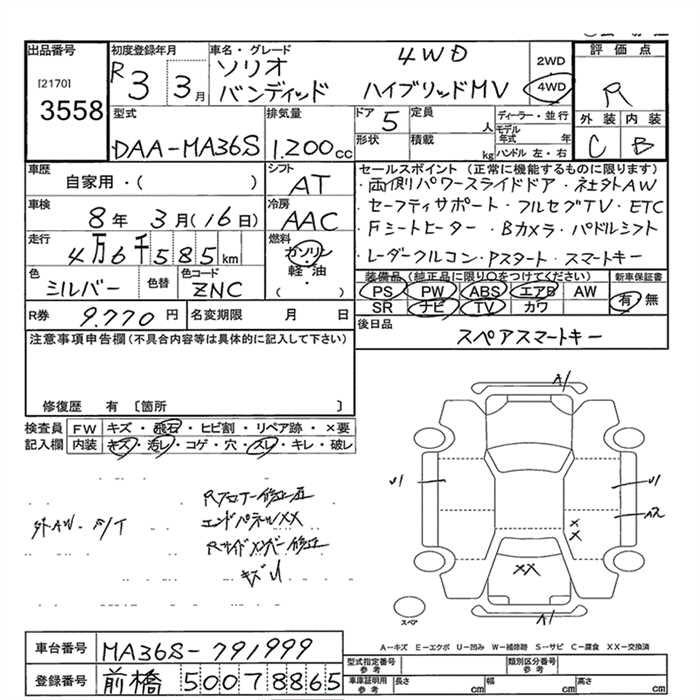 出品番号
[2170]
3558
初度登録年月
R 3 3月
車名・グレード
ソリオ 4WD
バンディッド ハイブリッドMV
2WD
4WD
評価点
R
外装 内装
C B
型式
DAA-MA36S
排気量
1.200cc
ドア 5
定員 人
形状
積載 kg
ディーラー・並行
モデル年式 年
ハンドル 左・右
車歴
自家用・( )
シフト
AT
車検
8年 3月(16日)
冷房
AAC
走行
4万6千585km
燃料
ガソリン
軽・油
( )
色
シルバー
色替
色コード
ZNC
R券 9.770円
名変期限 月 日
セールスポイント(正常に機能するものに限ります)
・両側パワースライドドア・社外AW
・セーフティサポート・フルセグTV・ETC
・Fシートヒーター・Bカメラ・パドルシフト
・レーダークルコン・Pスタート・スマートキー
装備品(純正品に限り〇をつけてください)
PS PW ABS エアB AW
SR ナビ TV カワ
新車保証書
有 無
後日品
スペアスマートキー
注意事項申告欄(不具合内容等は具体的に記入して下さい)
修復歴 有 〔箇所 〕
検査員記入欄
FW キズ・飛石・ヒビ割・リペア跡・×要
内装 キズ・汚レ・コゲ・穴・スレ・キレ・破レ
エンドパネルXX
キズU
A1
U1
U1
XX
XX
A1
スペア
A-キズ E-エクボ U-凹み W-補修跡 S-サビ C-腐食 XX-交換済
車台番号 MA36S-791999
登録番号 前橋 50078865
型式指定番号 参考
類別区分番号 参考
車庫証明用 参考
長さ cm
幅 cm
高さ cm